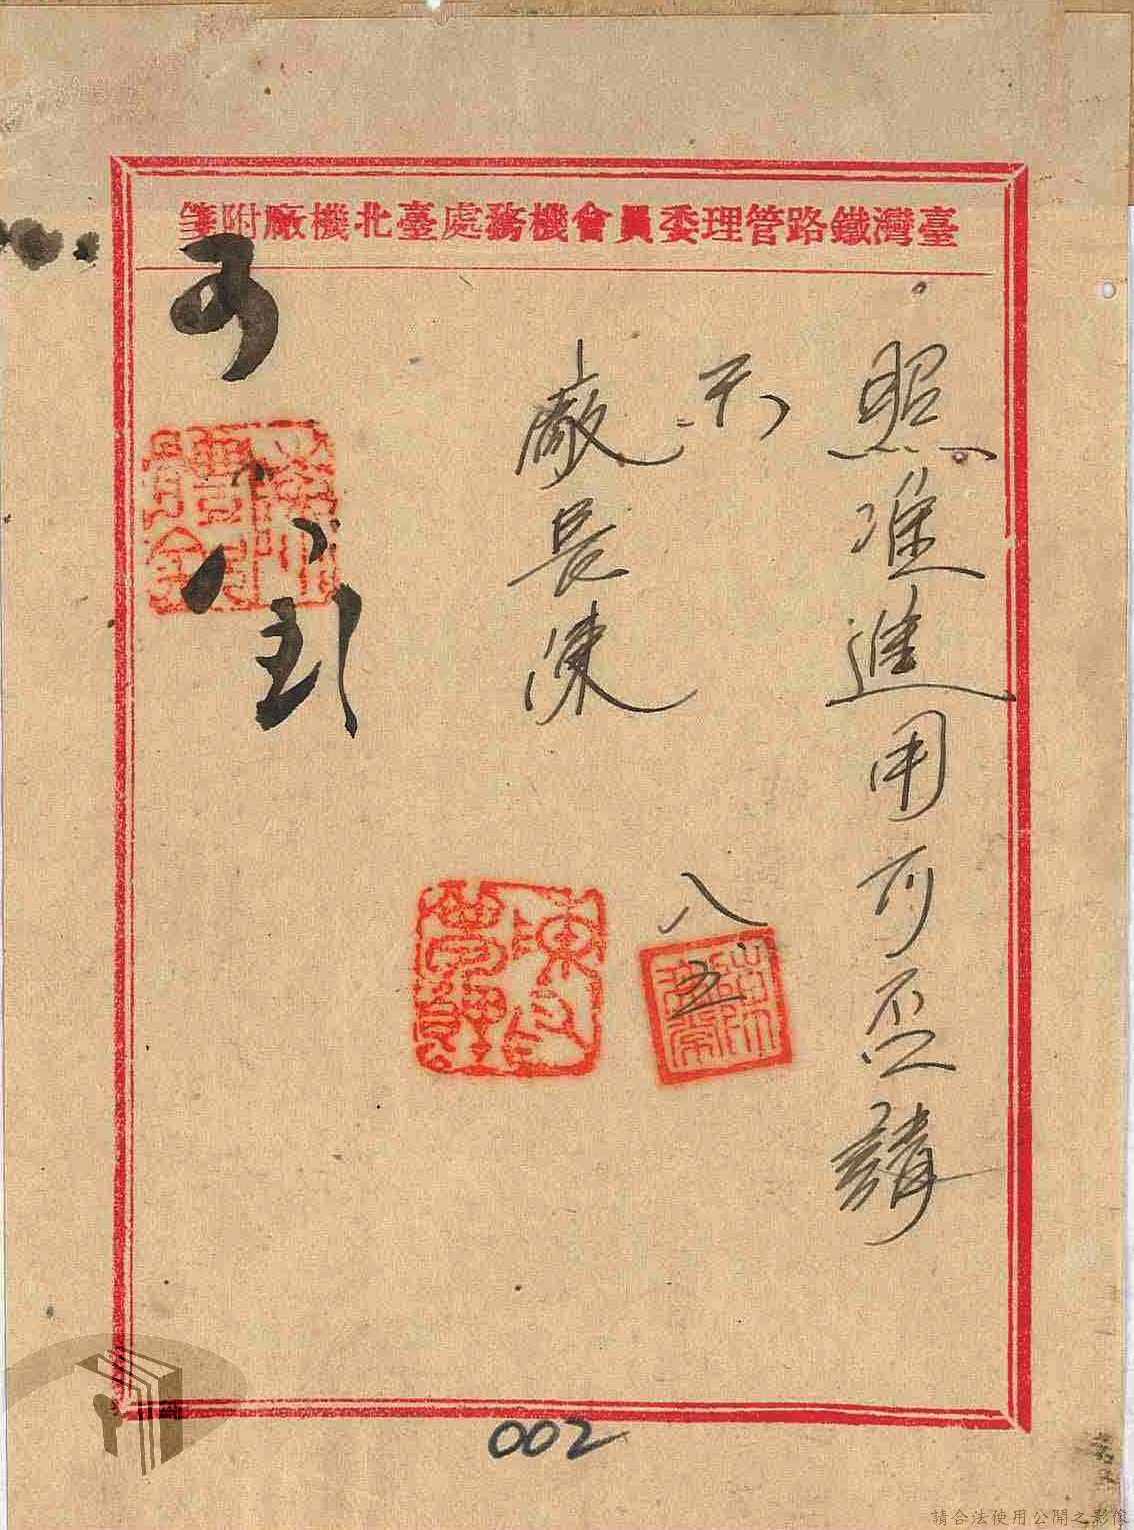 臺灣鐵路管理委員會機務處臺北機廠附箋
照准進用可否請
示
廠長陳
八
五
可
八
002
請合法使用公開之影像